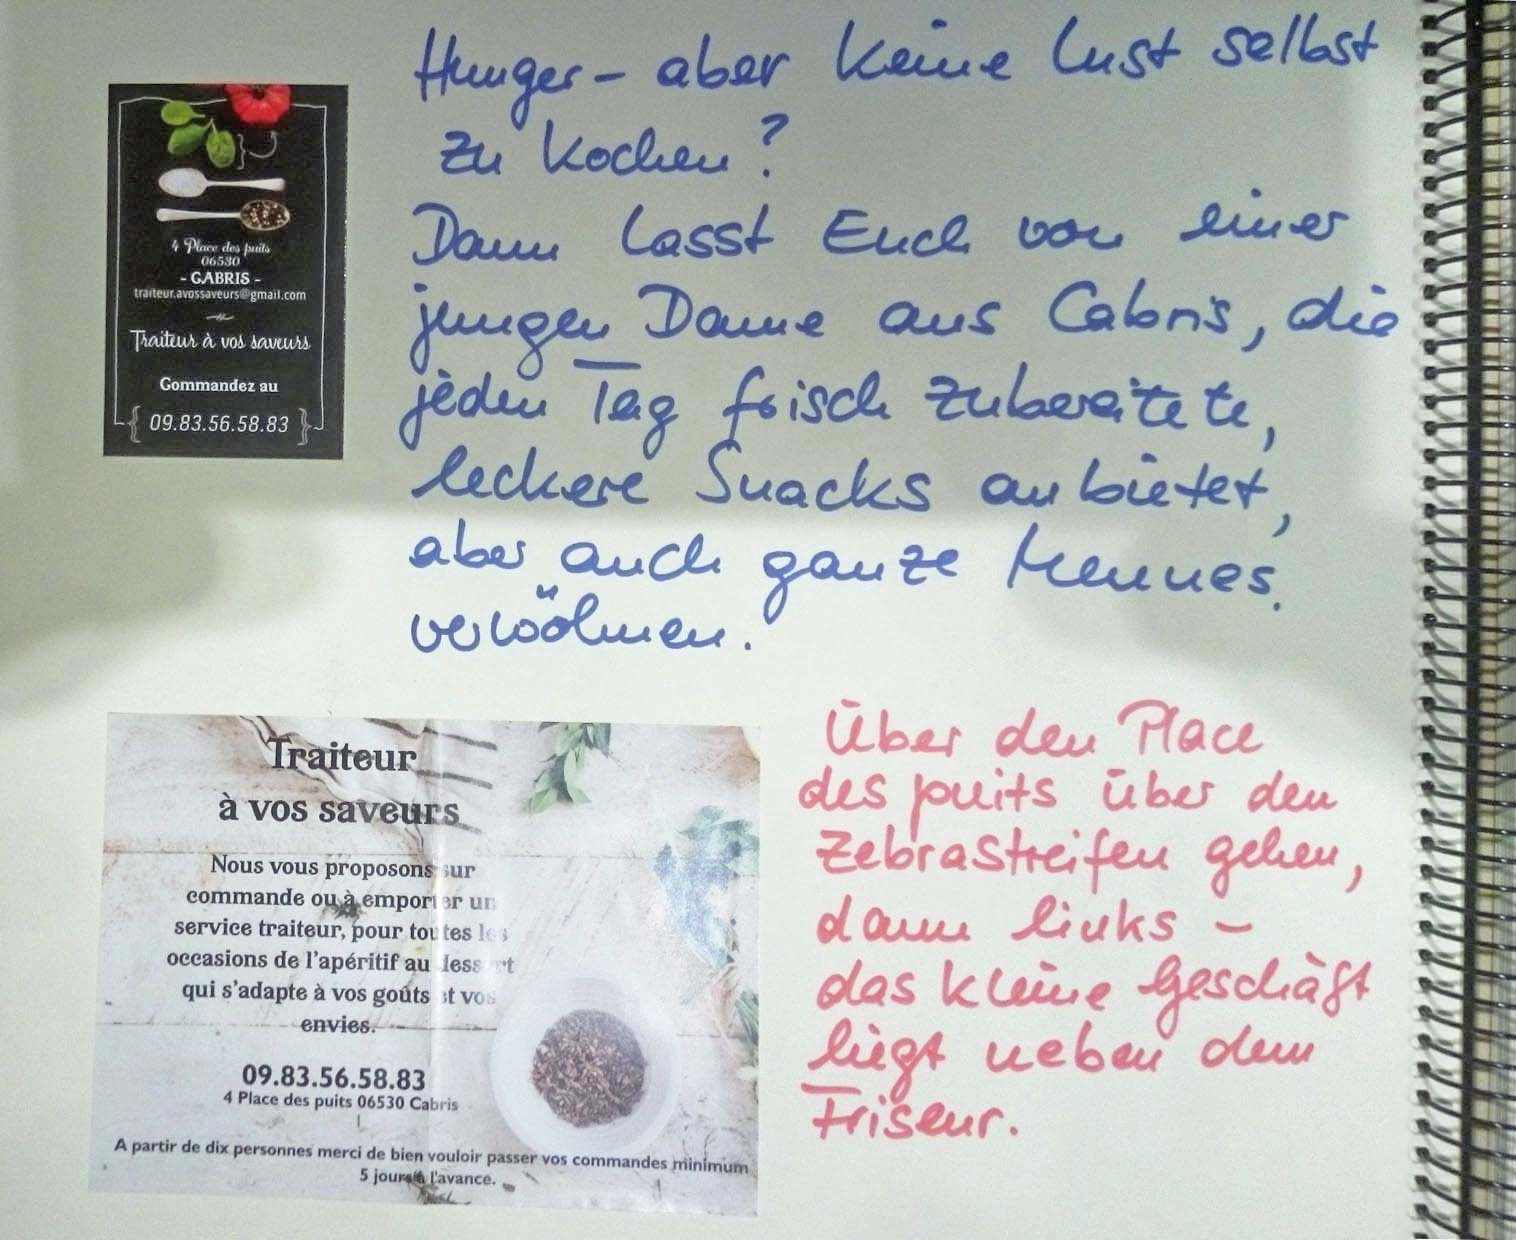 Hunger - aber keine Lust selbst
zu kochen?
Dann lasst Euch von einer
jungen Dame aus Cabris, die
jeden Tag frisch zubereitete,
leckere Snacks anbietet,
aber auch ganze Menues,
verwöhnen.
4 Place des puits
06530
- CABRIS -
traiteur.avossaveurs@gmail.com
Traiteur à vos saveurs
Commandez au
{ 09.83.56.58.83 }
Traiteur
à vos saveurs
Nous vous proposons sur
commande ou à emporter un
service traiteur, pour toutes les
occasions de l'apéritif au dessert
qui s'adapte à vos goûts et vos
envies.
09.83.56.58.83
4 Place des puits 06530 Cabris
A partir de dix personnes merci de bien vouloir passer vos commandes minimum
5 jours à l'avance.
Über den Place
des puits über den
Zebrastreifen gehen,
dann links -
das kleine Geschäft
liegt neben dem
Friseur.